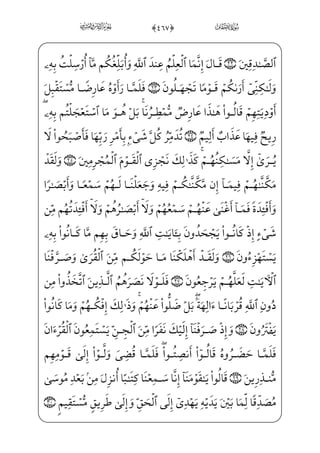 سُورَةُ الأَحۡقَافِ ﴿٤٦٧﴾
ٱلصَّٰدِقِينَ ۝٢٢ قَالَ إِنَّمَا ٱلۡعِلۡمُ عِندَ ٱللَّهِ وَأُبَلِّغُكُم مَّآ أُرۡسِلۡتُ بِهِۦ
وَلَٰكِنِّيٓ أَرَىٰكُمۡ قَوۡمٗا تَجۡهَلُونَ ۝٢٣ فَلَمَّا رَأَوۡهُ عَارِضٗا مُّسۡتَقۡبِلَ
أَوۡدِيَتِهِمۡ قَالُواْ هَٰذَا عَارِضٞ مُّمۡطِرُنَاۚ بَلۡ هُوَ مَا ٱسۡتَعۡجَلۡتُم بِهِۦۖ
رِيحٞ فِيهَا عَذَابٌ أَلِيمٞ ۝٢٤ تُدَمِّرُ كُلَّ شَيۡءِۭ بِأَمۡرِ رَبِّهَا فَأَصۡبَحُواْ لَا
يُرَىٰٓ إِلَّا مَسَٰكِنُهُمۡۚ كَذَٰلِكَ نَجۡزِي ٱلۡقَوۡمَ ٱلۡمُجۡرِمِينَ ۝٢٥ وَلَقَدۡ
مَكَّنَّٰهُمۡ فِيمَآ إِن مَّكَّنَّٰكُمۡ فِيهِ وَجَعَلۡنَا لَهُمۡ سَمۡعٗا وَأَبۡصَٰرٗا
وَأَفۡـِٔدَةٗ فَمَآ أَغۡنَىٰ عَنۡهُمۡ سَمۡعُهُمۡ وَلَآ أَبۡصَٰرُهُمۡ وَلَآ أَفۡـِٔدَتُهُم مِّن
شَيۡءٍ إِذۡ كَانُواْ يَجۡحَدُونَ بِـَٔايَٰتِ ٱللَّهِ وَحَاقَ بِهِم مَّا كَانُواْ بِهِۦ
يَسۡتَهۡزِءُونَ ۝٢٦ وَلَقَدۡ أَهۡلَكۡنَا مَا حَوۡلَكُم مِّنَ ٱلۡقُرَىٰ وَصَرَّفۡنَا
ٱلۡأٓيَٰتِ لَعَلَّهُمۡ يَرۡجِعُونَ ۝٢٧ فَلَوۡلَا نَصَرَهُمُ ٱلَّذِينَ ٱتَّخَذُواْ مِن
دُونِ ٱللَّهِ قُرۡبَانًا ءَالِهَةَۢۖ بَلۡ ضَلُّواْ عَنۡهُمۡۚ وَذَٰلِكَ إِفۡكُهُمۡ وَمَا كَانُواْ
يَفۡتَرُونَ ۝٢٨ وَإِذۡ صَرَفۡنَآ إِلَيۡكَ نَفَرٗا مِّنَ ٱلۡجِنِّ يَسۡتَمِعُونَ ٱلۡقُرۡءَانَ
فَلَمَّا حَضَرُوهُ قَالُوٓاْ أَنصِتُواْۖ فَلَمَّا قُضِيَ وَلَّوۡاْ إِلَىٰ قَوۡمِهِم
مُّنذِرِينَ ۝٢٩ قَالُواْ يَٰقَوۡمَنَآ إِنَّا سَمِعۡنَا كِتَٰبًا أُنزِلَ مِنۢ بَعۡدِ مُوسَىٰ
مُصَدِّقٗا لِّمَا بَيۡنَ يَدَيۡهِ يَهۡدِيٓ إِلَى ٱلۡحَقِّ وَإِلَىٰ طَرِيقٖ مُّسۡتَقِيمٖ ۝٣٠